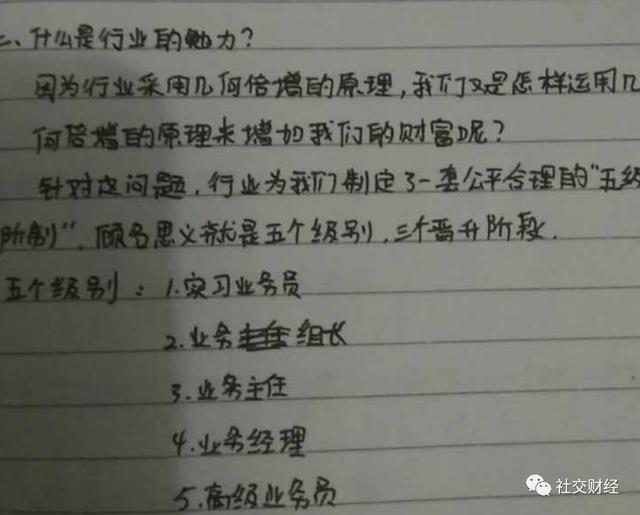 二、什么是行业的魅力?
因为行业采用几何倍增的原理,我们又是怎样运用几
何倍增的原理来增加我们的财富呢?
针对这问题,行业为我们制定了一套公平合理的“五级
阶制”,顾名思义就是五个级别,三个晋升阶段.
五个级别:1.实习业务员
2.业务主任组长
3.业务主任
4.业务经理
5.高级业务员
社交财经